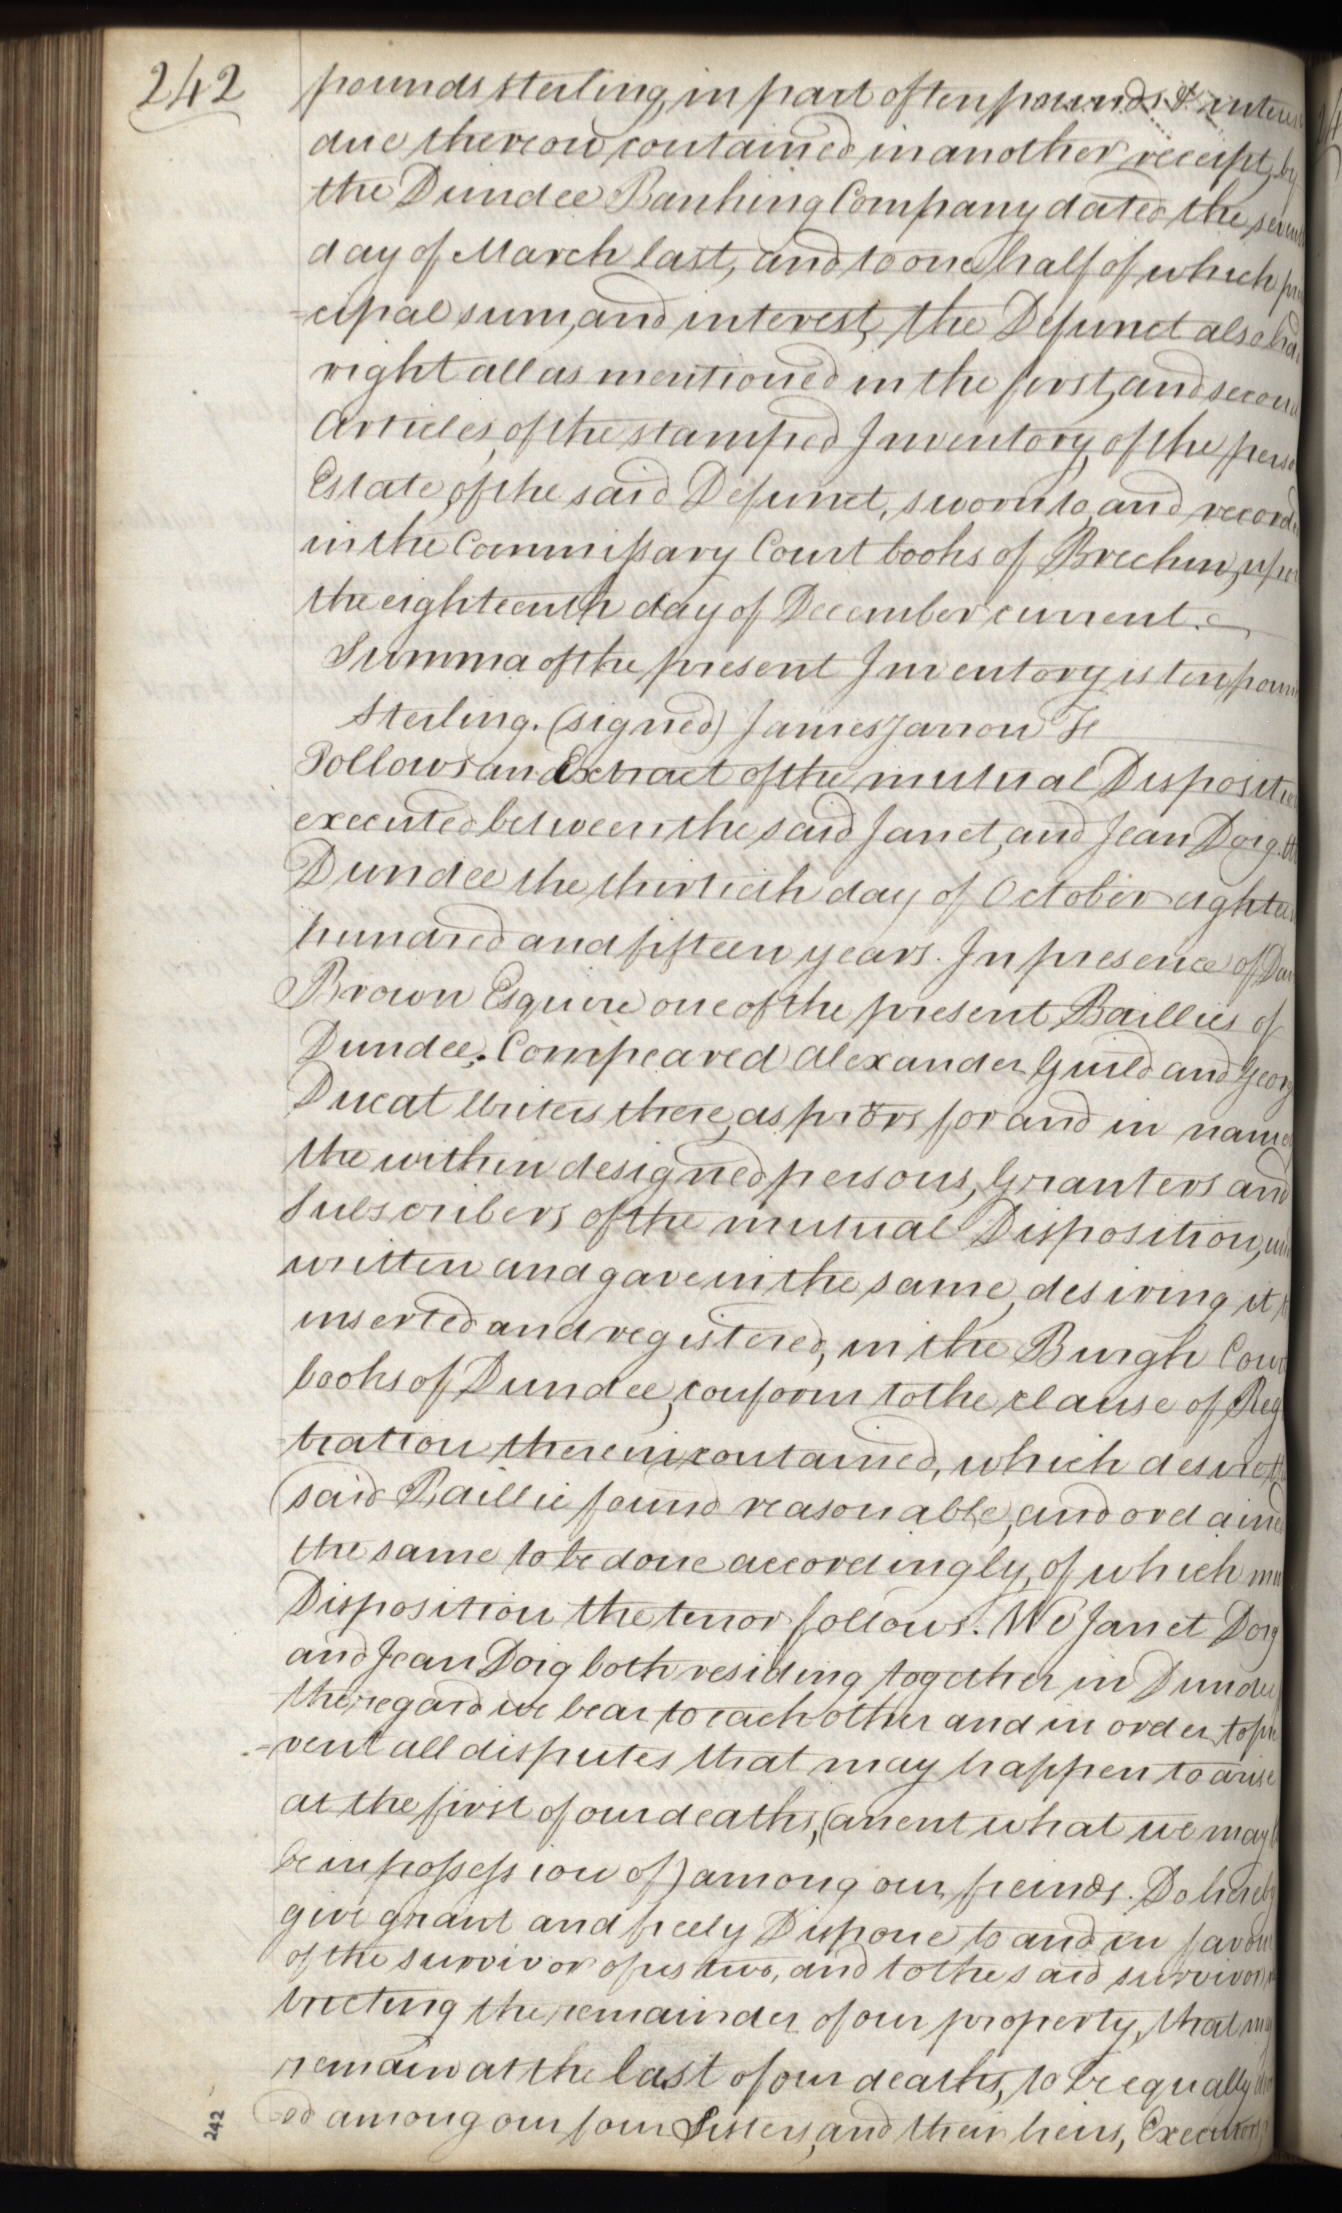 242
pounds sterling, in part of ten pounds & interes
due thereon contained in another receipt, by
the Dundee Banking Company dated the seventh
day of March last, and to one half of which prin
-cipal sum, and interest, the Defunct also had
right all as mentioned in the first, and second
Articles, of the stamped Inventory, of the perso
Estate, of the said Defunct, sworn to, and record
in the Commissary Court books of Brechin, upon
the eighteenth day of December current.
Summa of the present Inventory is ten poun
Sterling. (signed) James Jarron
Follows an Extract of the mutual Dispositio
executed between the said Janet, and Jean Doig. At
Dundee the thirtieth day of October eighteen
hundred and fifteen years. In presence of Dav
Brown Esquire one of the present Baillies of
Dundee. Compeared Alexander Guild and Georg
Ducat Writers there, as prörs for and in name
the within designed persons, Granters and
Subscribers of the mutual Disposition,
written and gave in the same, desiring it
inserted and registered, in the Burgh Cour
books of Dundee, conform to the clause of Reg
-tration therein contained, which desire, the
said Baillie found reasonable, and ordained
the same to be done accordingly, of which mu
Disposition the tenor follows. We Janet Doig
and Jean Doig both residing together in Dundee
the regard we bear to each other and in order to pre
-vent all disputes that may happen to arise
at the first of our deaths, (anent what we may
be in possession of) among our freinds. Do hereby
give grant and freely Dispone to and in favour
of the survivor of us two, and to the said survivor,
tricting the remainder of our property, that may
remain at the last of our deaths, to be equally
ed among our four Sisters, and their heirs, Executors,
242